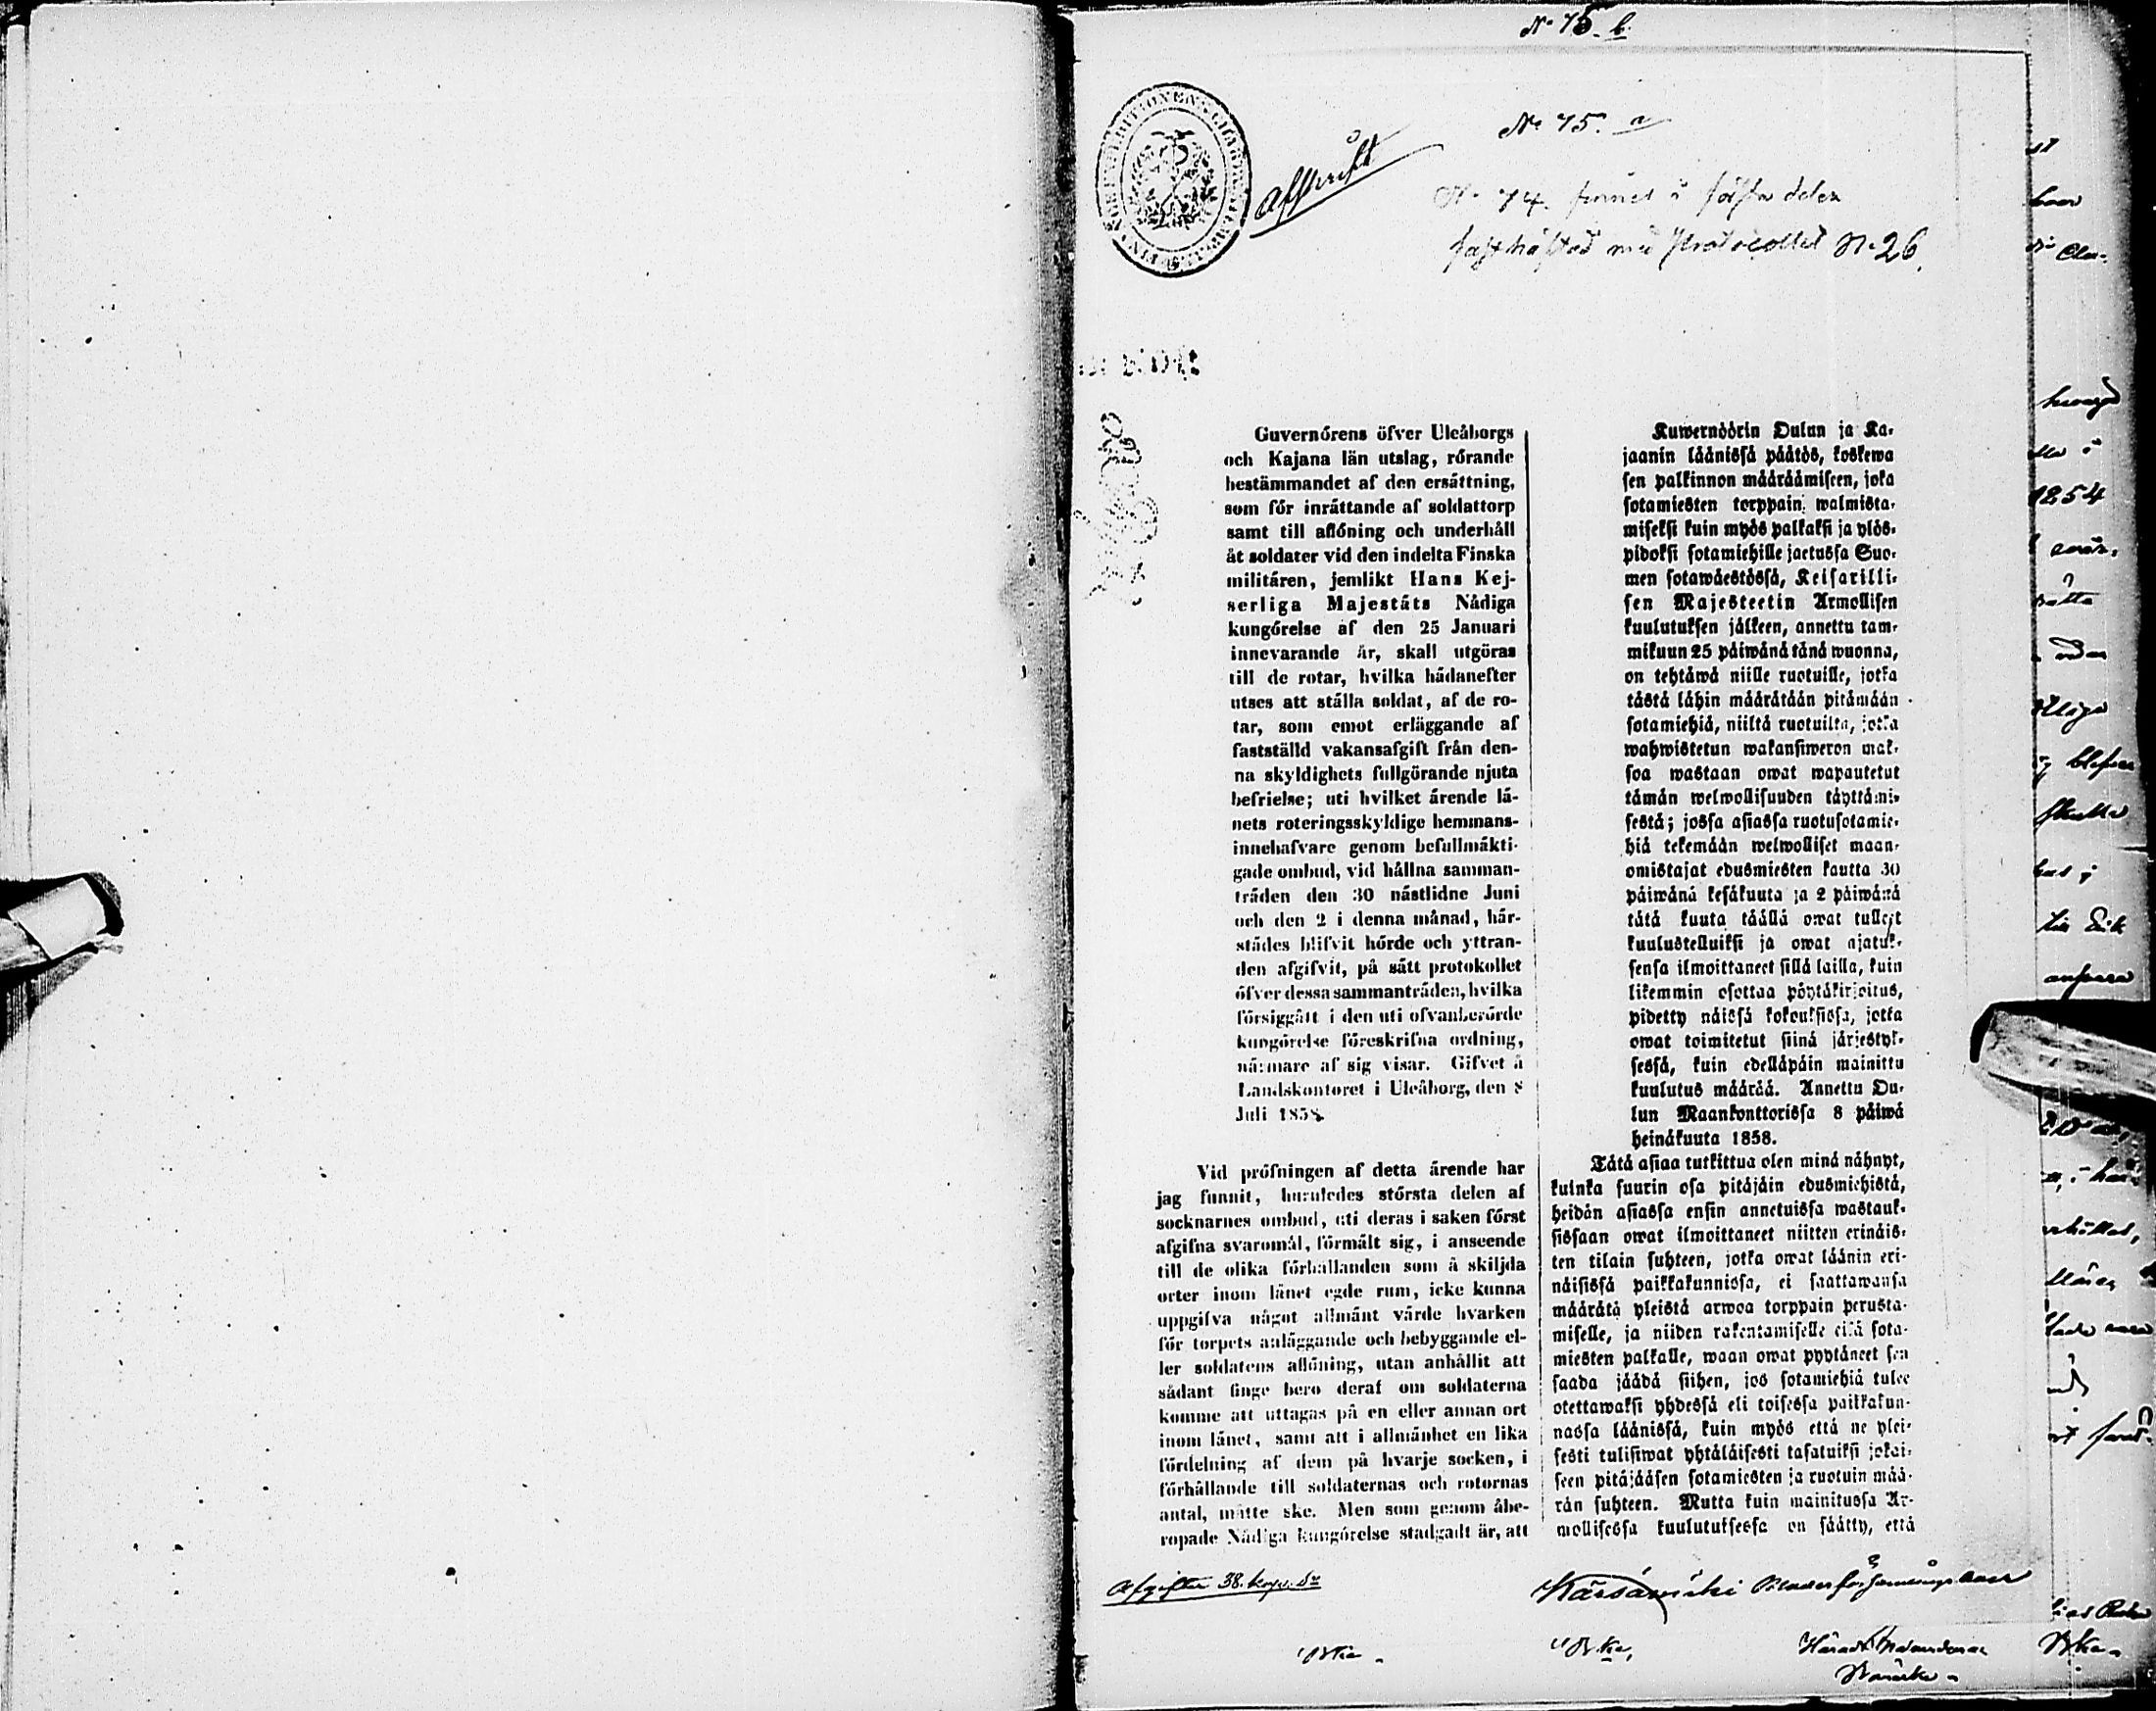 No 75. b.
No 75. a
Afskrift
No 74. finnes i första delen
fasthäftad med Protocollet No 26.
Guvernörens öfver Uleåborgs
och Kajana län utslag, rörande
bestämmandet af den ersättning,
som för inrättande af soldattorp
samt till aflöning och underhåll
åt soldater vid den indelta Finska
militären, jemlikt Hans Kej-
serliga Majestäts Nådiga
kungörelse af den 25 Januari
innevarande år, skall utgöras
till de rotar, hvilka hädanefter
utses att ställa soldat, af de ro-
tar, som emot erläggande af
fastställd vakansafgift från den-
na skyldighets fullgörande njuta
befrielse; uti hvilket ärende lä-
nets roteringsskyldige hemmans-
innehafvare genom befullmäkti-
gade ombud, vid hållna samman-
träden den 30 nästlidne Juni
och den 2 i denna månad, här-
städes blifvit hörde och yttran-
den afgifvit, på sätt protokollet
öfver dessa sammanträden, hvilka
försiggått i den uti ofvanberörde
kungörelse föreskrifna ordning,
närmare af sig visar. Gifvet å
Landskontoret i Uleåborg, den 8
Juli 1858.
Vid pröfningen af detta ärende har
jag funnit, huruledes största delen af
socknarnes ombud, uti deras i saken först
afgifna svaromål, förmält sig, i anseende
till de olika förhållanden som å skiljda
orter inom länet egde rum, icke kunna
uppgifva något allmänt värde hvarken
för torpets anläggande och bebyggande el-
ler soldatens aflöning, utan anhållit att
sådant finge bero deraf om soldaterna
komme att uttagas på en eller annan ort
inom länet, samt att i allmänhet en lika
fördelning af dem på hvarje socken, i
förhållande till soldaternas och rotornas
antal, måtte ske. Men som genom åbe-
ropade Nådiga kungörelse stadgadt är, att
Kuwernöörin Oulun ja Ka-
jaanin läänissä päätös, koskewa
sen palkinnon määräämiseen, joka
sotamiesten torppain walmista-
miseksi kuin myös palkaksi ja ylös-
pidoksi sotamiehille jaetussa Suo-
men sotawäestössä, Keisarilli-
sen Majesteetin Armollisen
kuulutuksen jälkeen, annettu tam-
mikuun 25 päiwänä tänä wuonna,
on tehtäwä niille ruotuille, jotka
tästä lähin määrätään pitämään
sotamiehiä, niiltä ruotuilta, jotka
wahwistetun wakansiweron mak-
soa wastaan owat wapautetut
tämän welwollisuuden täyttämi-
sestä; jossa asiassa ruotusotamie-
hiä tekemään welwolliset maan-
omistajat edusmiesten kautta 30
päiwänä kesäkuuta ja 2 päiwänä
tätä kuuta täällä owat tulleet
kuulustelluiksi ja owat ajatuk-
sensa ilmoittaneet sillä lailla, kuin
likemmin osottaa pöytäkirjoitus,
pidetty näissä kokouksissa, jotka
owat toimitetut siinä järjestyk-
sessä, kuin edelläpäin mainittu
kuulutus määrää. Annettu Ou-
lun Maankonttorissa 8 päiwä
heinäkuuta 1858.
Tätä asiaa tutkittua olen minä nähnyt,
kuinka suurin osa pitäjäin edusmiehistä,
heidän asiassa ensin annetuissa wastauk-
sissaan owat ilmoittaneet niitten erinäis-
ten tilain suhteen, jotka owat läänin eri-
näisissä paikkakunnissa, ei saattawansa
määrätä yleistä arwoa torppain perusta-
miselle, ja niiden rakentamiselle eikä sota-
miesten palkalle, waan owat pyytäneet sen
saada jäädä siihen, jos sotamiehiä tulee
otettawaksi yhdessä eli toisessa paikkakun-
nassa läänissä, kuin myös että ne ylei-
sesti tulisiwat yhtäläisesti tasatuiksi jokai-
seen pitäjääsen sotamiesten ja ruotuin mää-
rän suhteen. Mutta kuin mainitussa Ar-
mollisessa kuulutuksessa on säätty, että
Afgifter 38. kop. Sr
Kärsämäki
1854